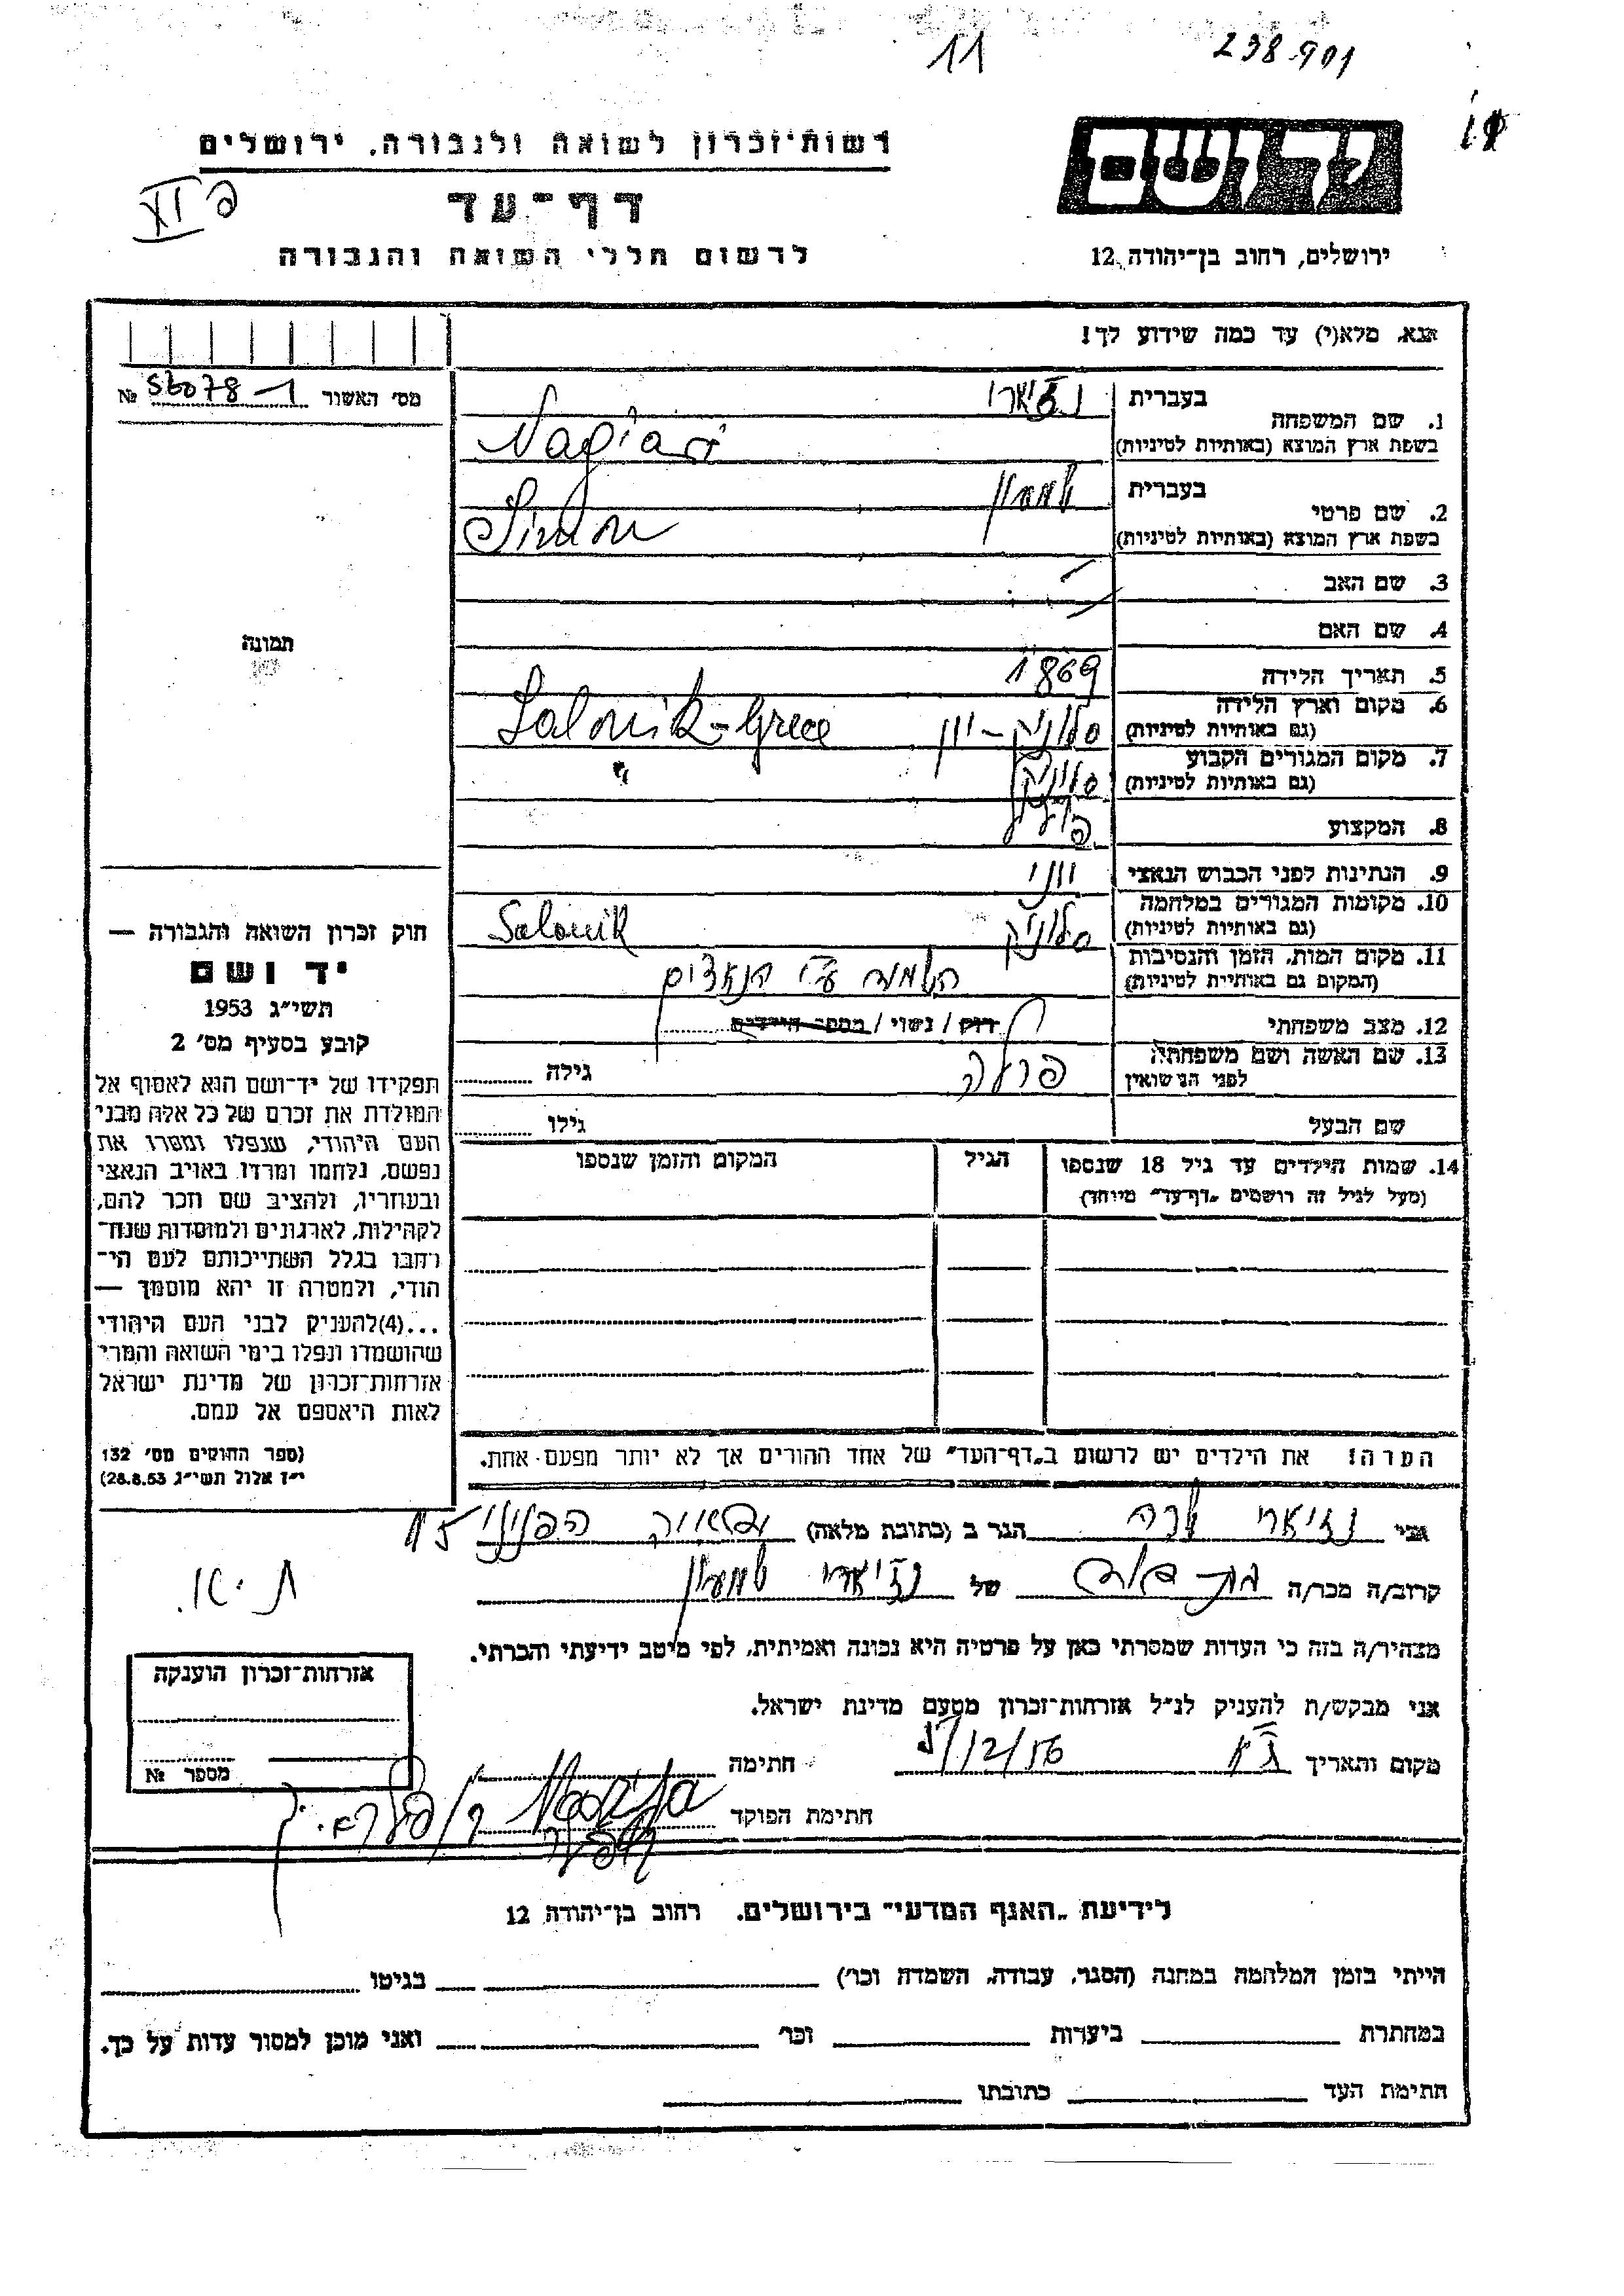 11
238901
רשות־זכרון לשואה ולגבורה, ירושלים
יד ושם
דף־עד
לרשום חללי השואה והגבורה
ירושלים, רחוב בן־יהודה 12
אנא, מלא(י) עד כמה שידוע לך!
מס' האשור
№
1. שם המשפחה
בעברית
נג'יארי
בשפת ארץ המוצא (באותיות לטיניות)
Nagiari
2. שם פרטי
בעברית
שמעון
בשפת ארץ המוצא (באותיות לטיניות)
Simon
3. שם האב
4. שם האם
תמונה
5. תאריך הלידה
1869
6. מקום וארץ הלידה
(גם באותיות לטיניות)
סלוניקי - יוון
Salonik-Grece
7. מקום המגורים הקבוע
(גם באותיות לטיניות)
סלוניקי
"
8. המקצוע
9. הנתינות לפני הכבוש הנאצי
יווני
10. מקומות המגורים במלחמה
(גם באותיות לטיניות)
סלוניקי
Salonik
11. מקום המות, הזמן והנסיבות
(המקום גם באותיות לטיניות)
הושמד ע"י הנאצים
12. מצב משפחתי
רווק / נשוי / מספר הילדים
13. שם האשה ושם משפחתה
לפני הנישואין
גילה
שם הבעל
גילו
14. שמות הילדים עד גיל 18 שנספו
(מעל לגיל זה רושמים „דף־עד" מיוחד)
הגיל
המקום והזמן שנספו
חוק זכרון השואה והגבורה —
יד ושם
תשי״ג 1953
קובע בסעיף מס' 2
תפקידו של יד־ושם הוא לאסוף אל
המולדת את זכרם של כל אלה מבני
העם היהודי, שנפלו ומסרו את
נפשם, נלחמו ומרדו באויב הנאצי
ובעוזריו, ולהציב שם וזכר להם,
לקהילות, לארגונים ולמוסדות שנח־
רבו בגלל השתייכותם לעם הי־
הודי, ולמטרה זו יהא מוסמך —
...(4)להעניק לבני העם היהודי
שהושמדו ונפלו בימי השואה והמרי
אזרחות־זכרון של מדינת ישראל
לאות היאספם אל עמם.
(ספר החוקים מס' 132
י״ז אלול תשי״ג 28.8.53)
הערה! את הילדים יש לרשום ב„דף־העד" של אחד ההורים אך לא יותר מפעם אחת.
אני נג'יארי שרה הגר ב (כתובת מלאה)
ת"א.
קרוב/ה מכר/ה של נג'יארי שמעון
מצהיר/ה בזה כי העדות שמסרתי כאן על פרטיה היא נכונה ואמיתית, לפי מיטב ידיעתי והכרתי.
אני מבקש/ת להעניק לנ״ל אזרחות־זכרון מטעם מדינת ישראל.
מקום ותאריך ת"א
חתימה
חתימת הפוקד
אזרחות־זכרון הוענקה
מספר №
לידיעת „האגף המדעי" בירושלים. רחוב בן־יהודה 12
הייתי בזמן המלחמה במחנה (הסגר, עבודה, השמדה וכו') בגיטו
במחתרת ביערות וכו' ואני מוכן למסור עדות על כך.
חתימת העד כתובתו